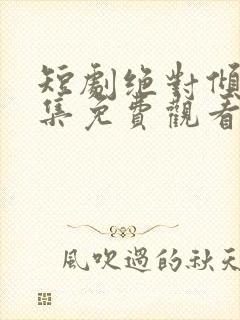 短劇绝對傾
集免費觀看
風吹過的秋天